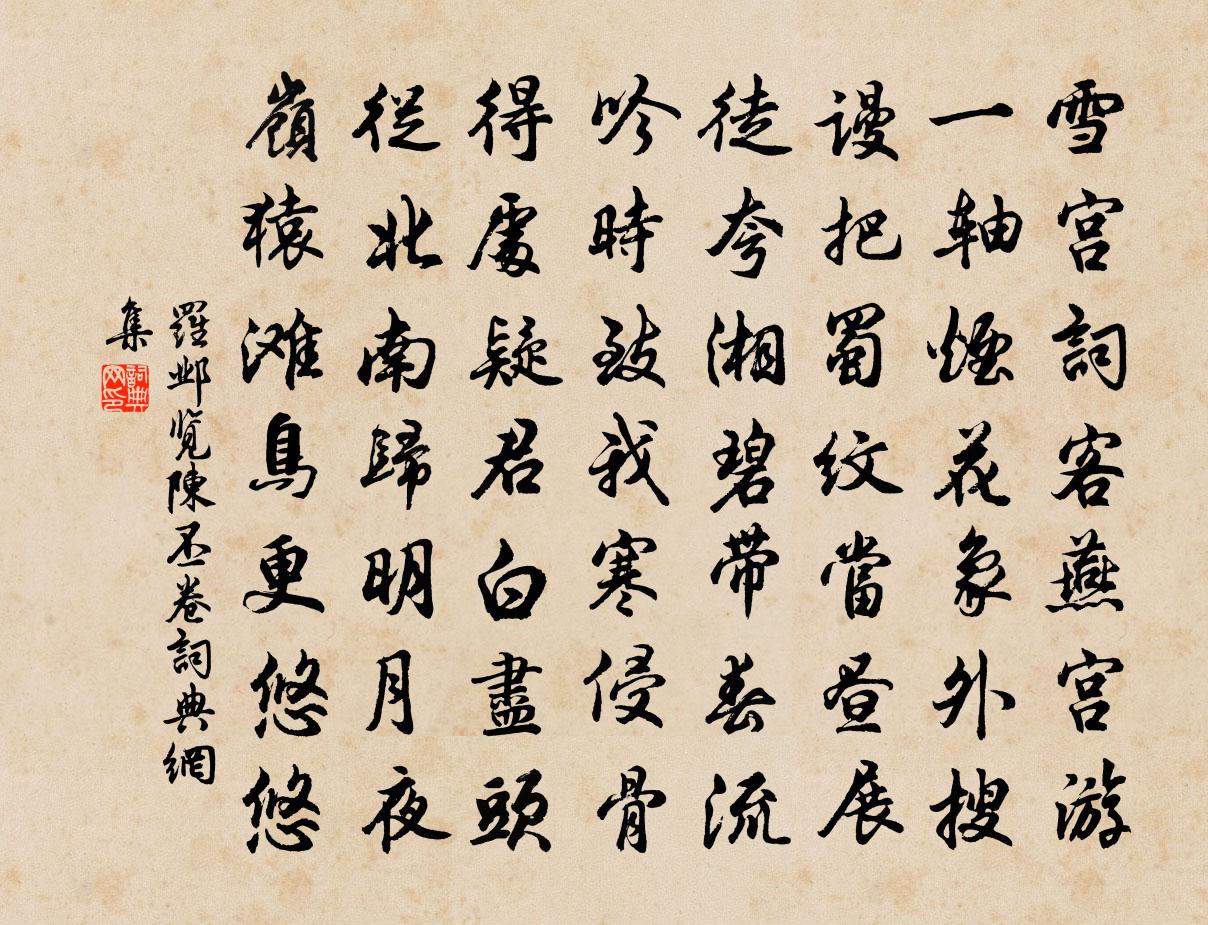 雪宮詞客燕宮游
一軸煙花象外搜
謾把蜀紋當晝展
徒夸湘碧帶春流
吟時致我寒侵骨
得處疑君白盡頭
從北南歸明月夜
嶺猿灘鳥更悠悠
羅鄴覽陳丕卷詞典網
集
詞典网印